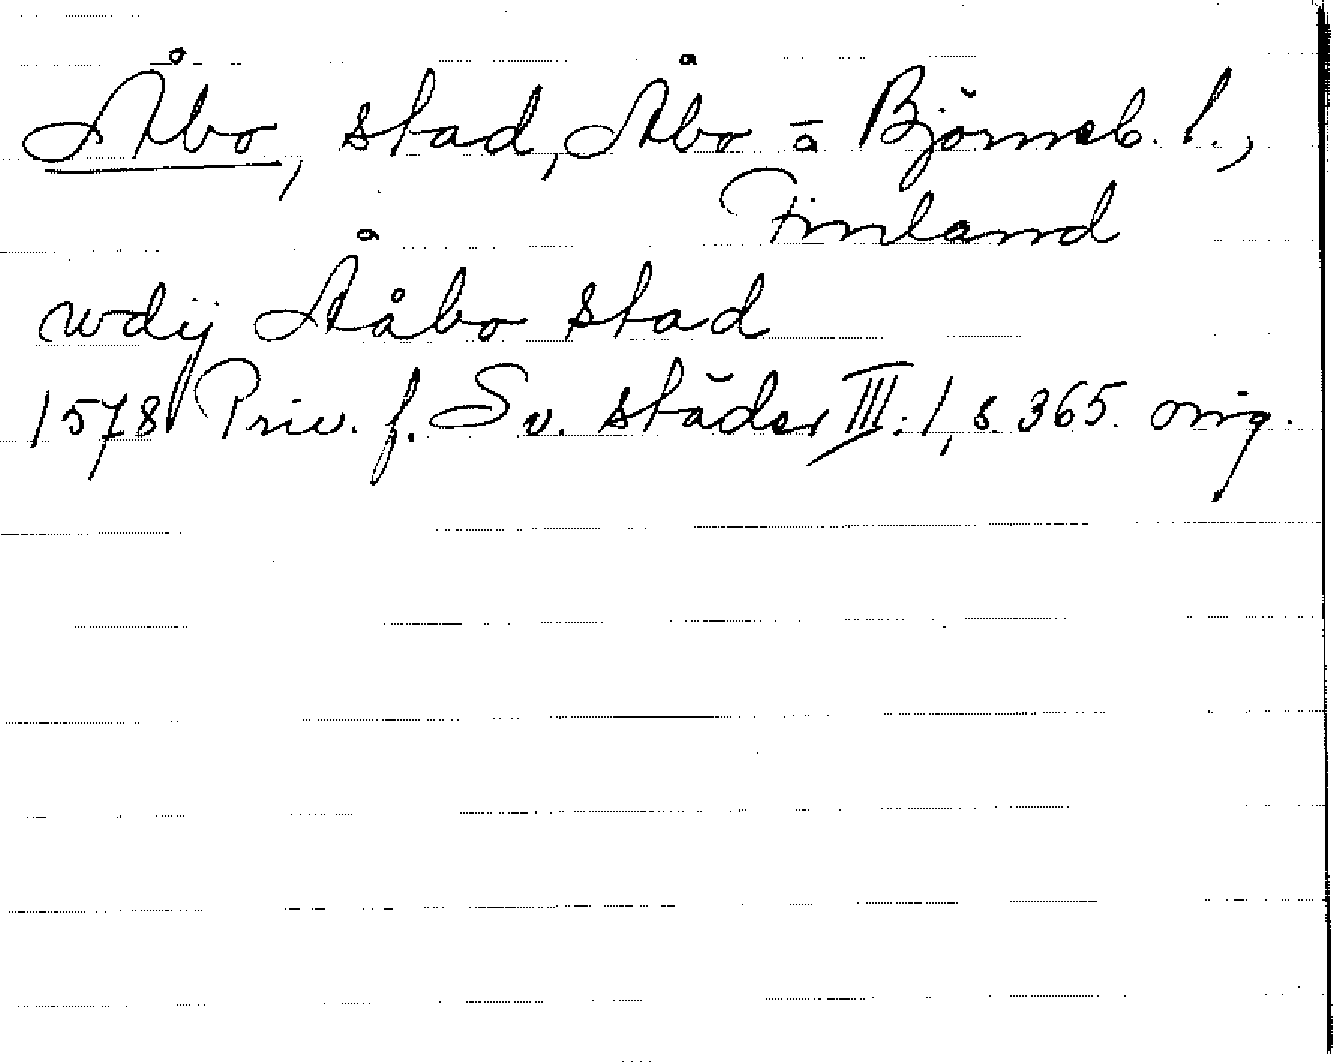 Åbo, stad, Åbo o Björneb. l.,
Finland
wdij Ååbo stad
1578 Priv. f. Sv. städer III:1, s 365. orig.